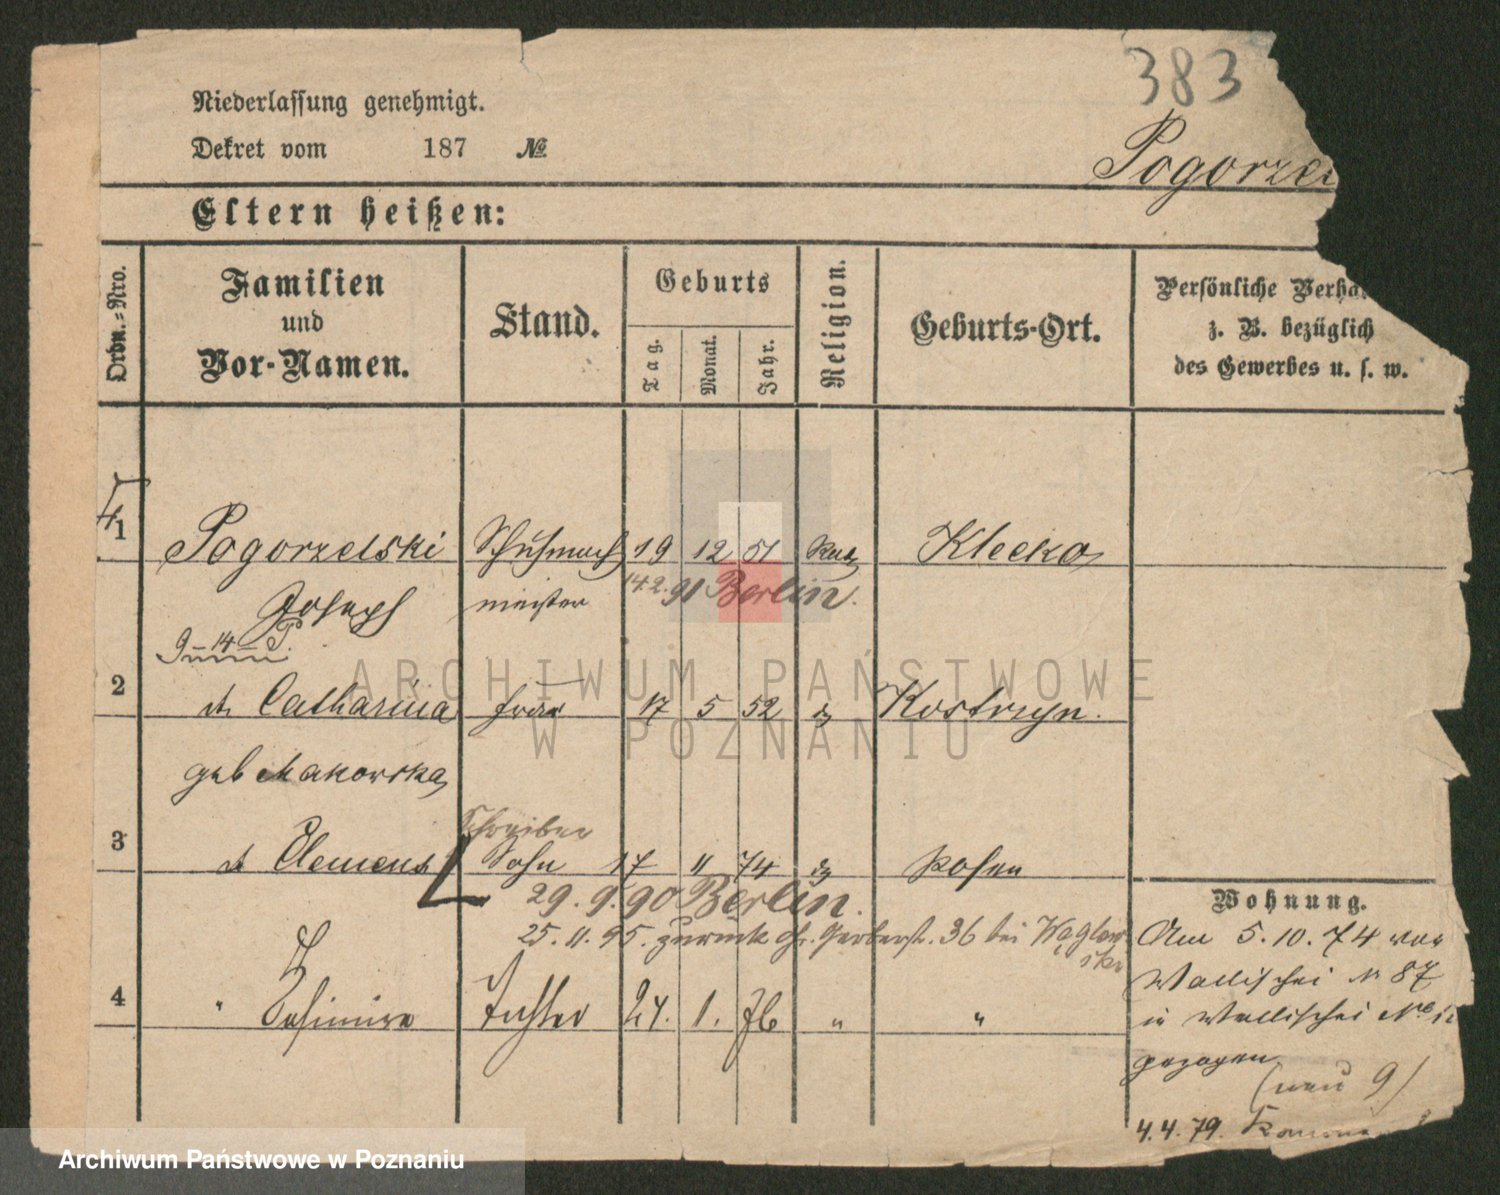 383
Niederlassung genehmigt.
Dekret vom 187 №
Pogorzel
Eltern heißen:
Ordn.=Nro.
Familien
und
Vor-Namen.
Stand.
Geburts
Tag.
Monat.
Jahr.
Religion.
Geburts-Ort.
Persönliche Verhä
z. B. bezüglich
des Gewerbes u. s. w.
1 Pogorzelski Schuhmach 19 12 51 Kath Klecko
14.2.91 Berlin.
Joseph meister
14
2 Catharina Frau 17 5 52 Kostrzyn.
geb Makowska
Schreiber
3 Clemens Sohn 17 11 74 Posen
29.9.90 Berlin.
25.11.95. zurück Gr. Gerberstr. 36 bei
4 " Casimira Tochter 24. 1. 76 " "
Wohnung.
Am 5.10.74 von
Wallischei № 87
in Wallischei
gezogen
(neu 9)
4.4.79.
ARCHIWUM PAŃSTWOWE
W POZNANIU
Archiwum Państwowe w Poznaniu